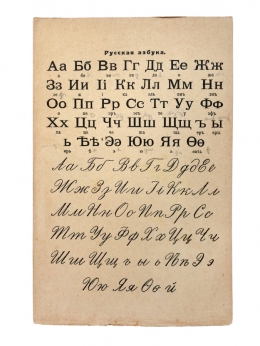 Русская азбука.
Аа Бб Вв Гг Дд Ее Жж
Зз Ии Іі Кк Лл Мм Нн
Оо Пп Рр Сс Тт Уу Фф
Хх Цц Чч Шш Щщ ъ ы
ь Ѣѣ Ээ Юю Яя Ѳѳ
Аа Бб Вв Гг Дд Ее
Жж Зз Ии Іі Кк Лл
Мм Нн Оо Пп Рр Сс
Тт Уу Фф Хх Цц Чч
Шш Щщ ъ ы ь Ѣѣ Ээ
Юю Яя Ѳѳ й